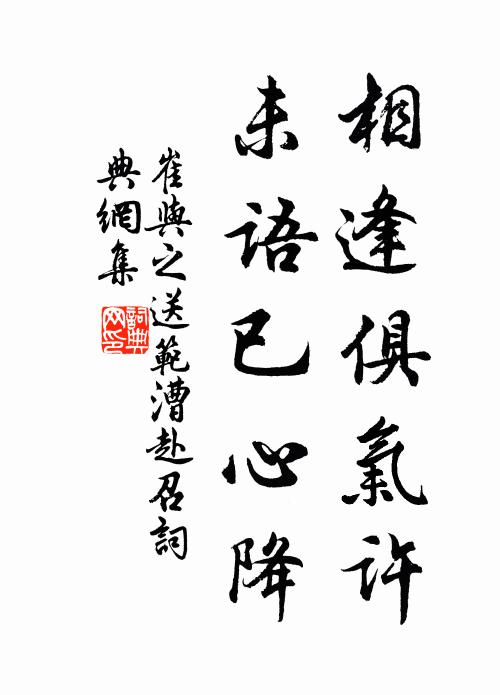 相逢俱氣許
未語已心降
崔與之送範漕赴召詞
典網集
詞典
网印